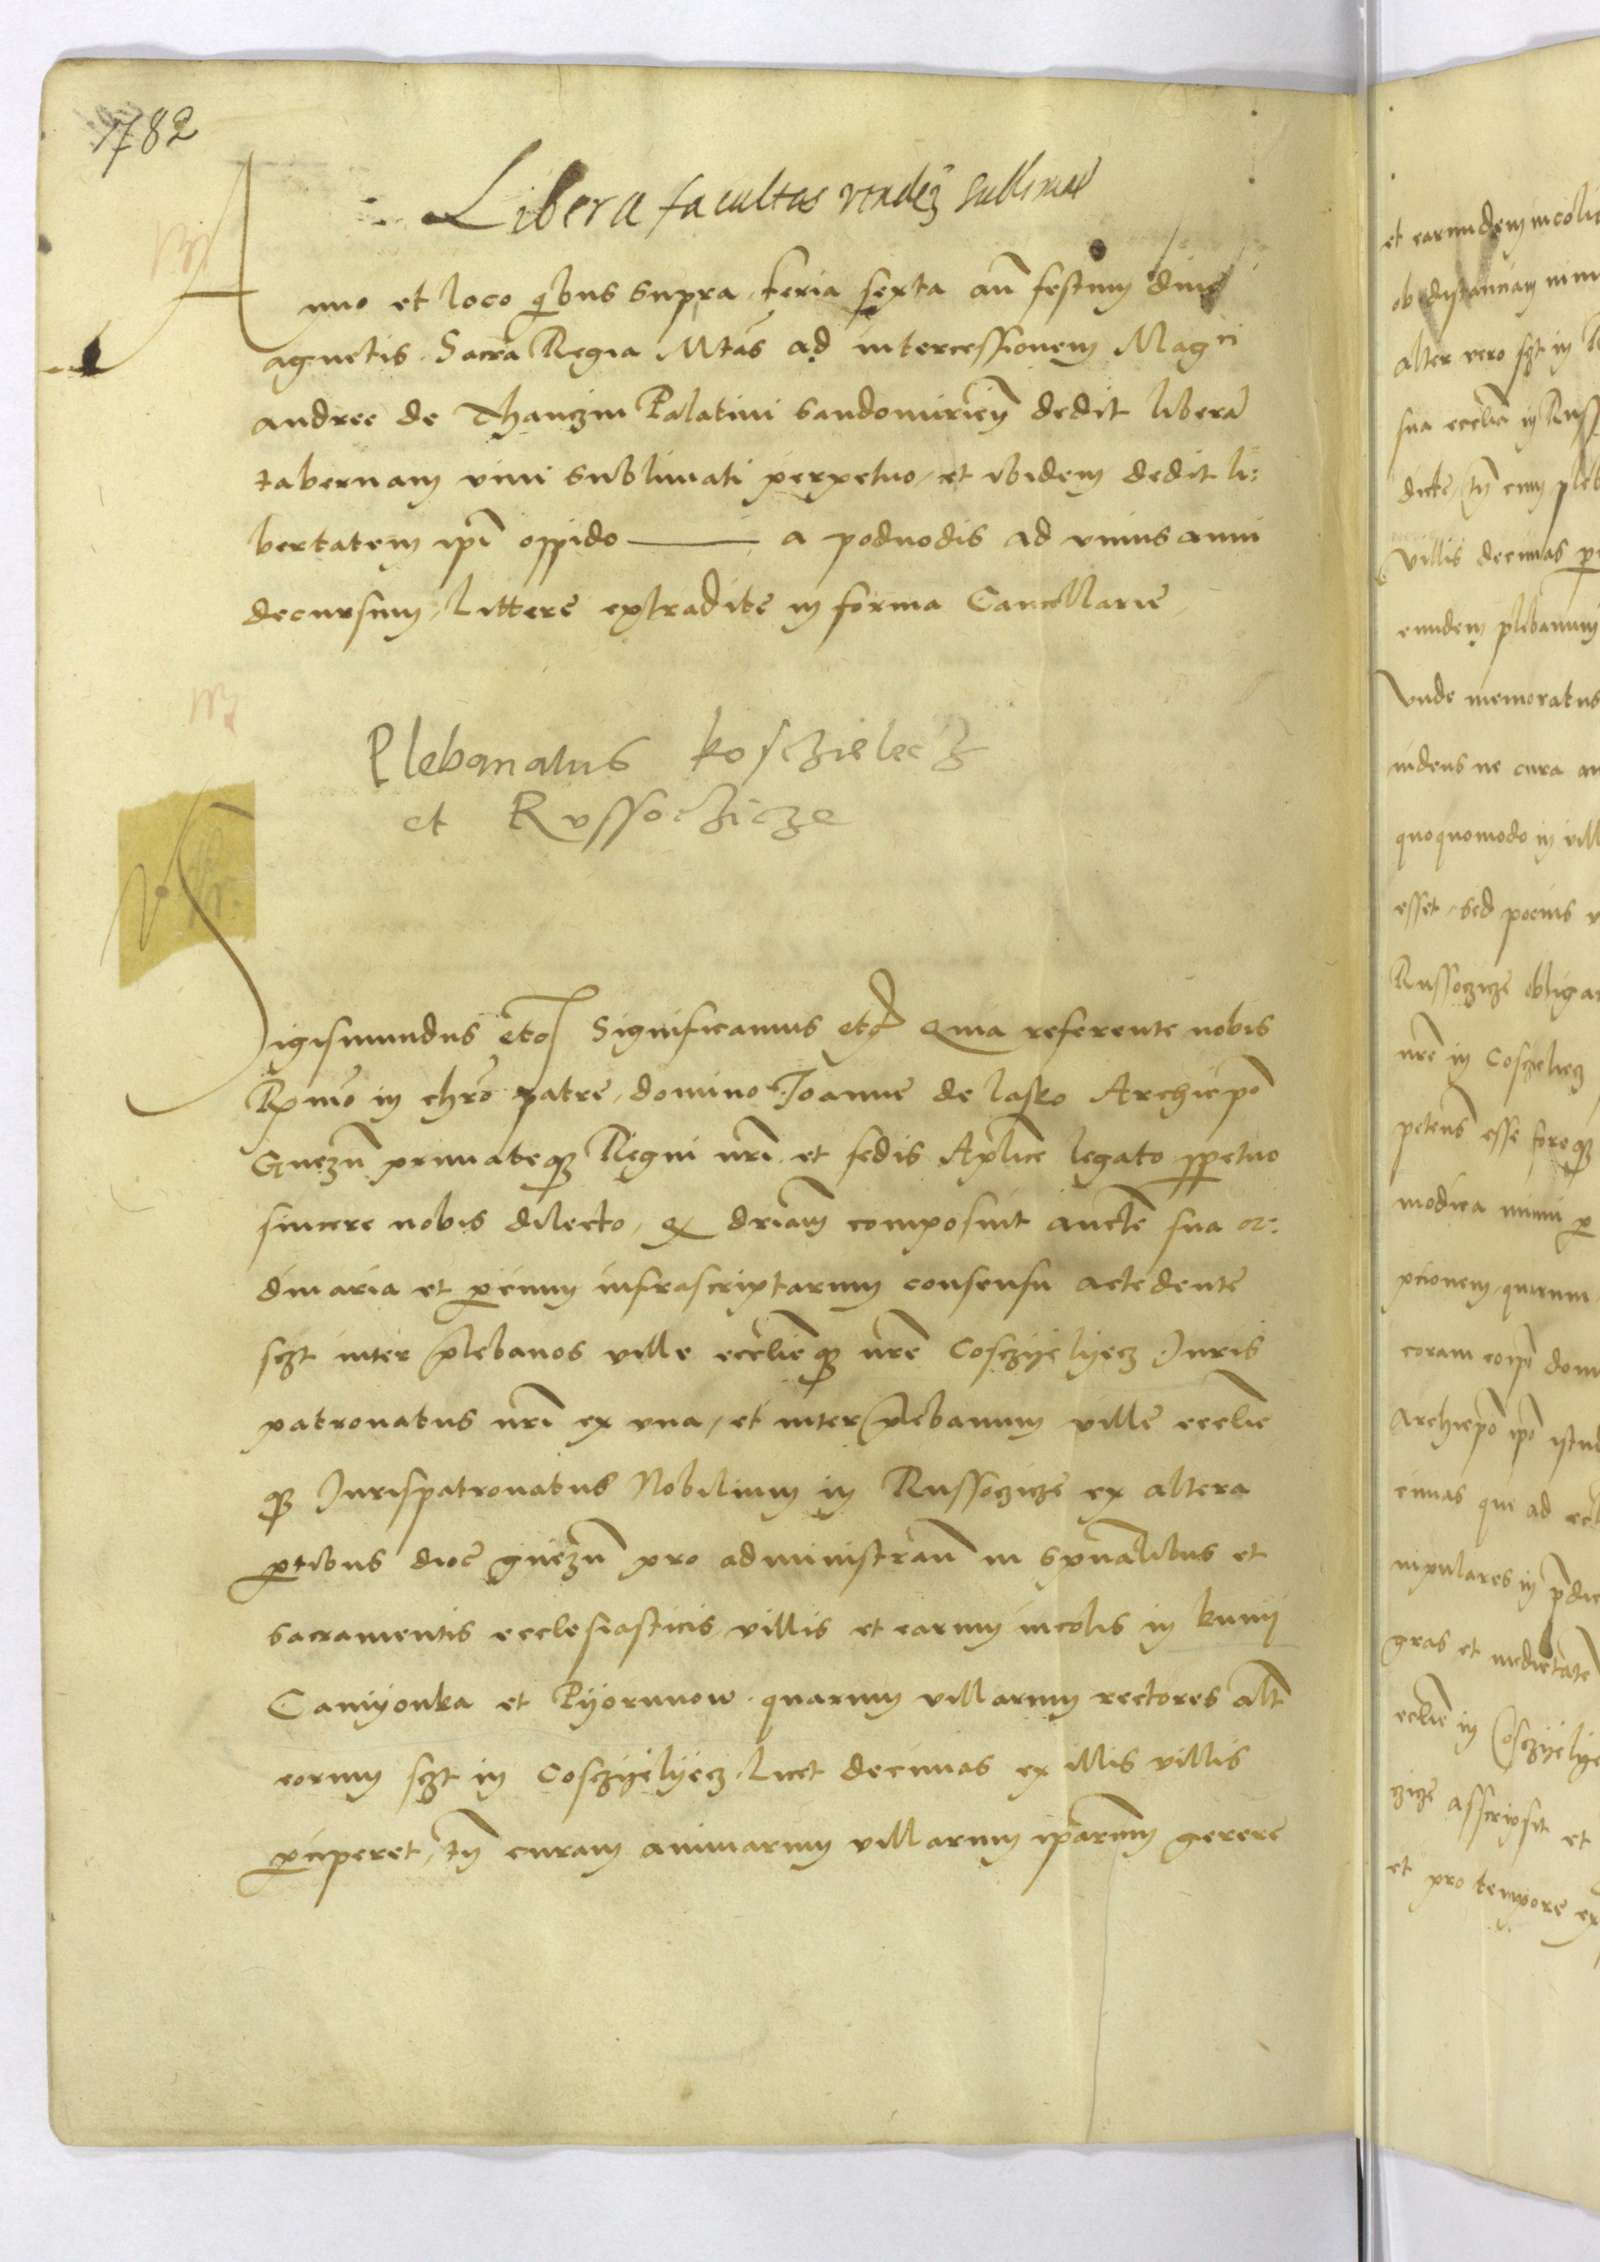 1782
Libera facultas vendeȝ sublimat
Anno et loco qibus supra feria sexta an̄ festum dive
agnetis Sacra Regia Mtas ad intercessionem Magci
andree de Thanczin Palatini sandomirien̄ dedit liberā
tabernam vini sublimati perpetuo et ibidem dedit li:
bertatem ipī oppido — a podvodis ad unius anni
decursum, Littere extradite in forma Cancellarie
Plebanatus kosczielecz
et Russoczicze
Sigismundus etc Significamus etc Quia referente nobis
Rmo in chro patre domino Joanne de lasko Archiepo
Gnezn̄ primateqȝ Regni nrī et sedis Aplice legato ppetuo
sincere nobis dilecto, ex driam composuit aucte sua or:
dinaria et parcium infrascriptarum consensu accedente
sczt inter plebanos ville ecclieqȝ nrē Cosczyelyecz Juris
patronatus nrī ex una, et inter plebanum ville ecclie
qȝ Jurispatronatus Nobilium in Russoczicze ex altera
ptibus dioc̄ gnezn̄ pro administran̄ in spualibus et
sacramentis ecclesiasticis villis et earum incolis in kunij
Camyonka et Pyorunow quarum villarum rectores alt̄
eorum sczt in Cosczyelyecz Licet decimas ex illis villis
pciperet, tn̄ curam animarum villarum ipārum gerere
et earundem incolis
ob distanciam nim
alter vero sczt in R
sua ecclia in Russ
dicte, tn̄ cum pleb
villis decimas p
eundem plebanum
Unde memoratus
videns ne cura an
quoquomodo in vill
esset, sed pocius
Russoczicze obligar
nrē in Cosczielecz
petens esse foreqȝ
modica nimi p
pcionem, quirum
coram eoipo dom
Archiepo ipo istud
cimas que ad eccl
nipulares in pdic
gras et medietate
ecclie in Cosczyelye
czicze asscripsit et
et pro tempore ex